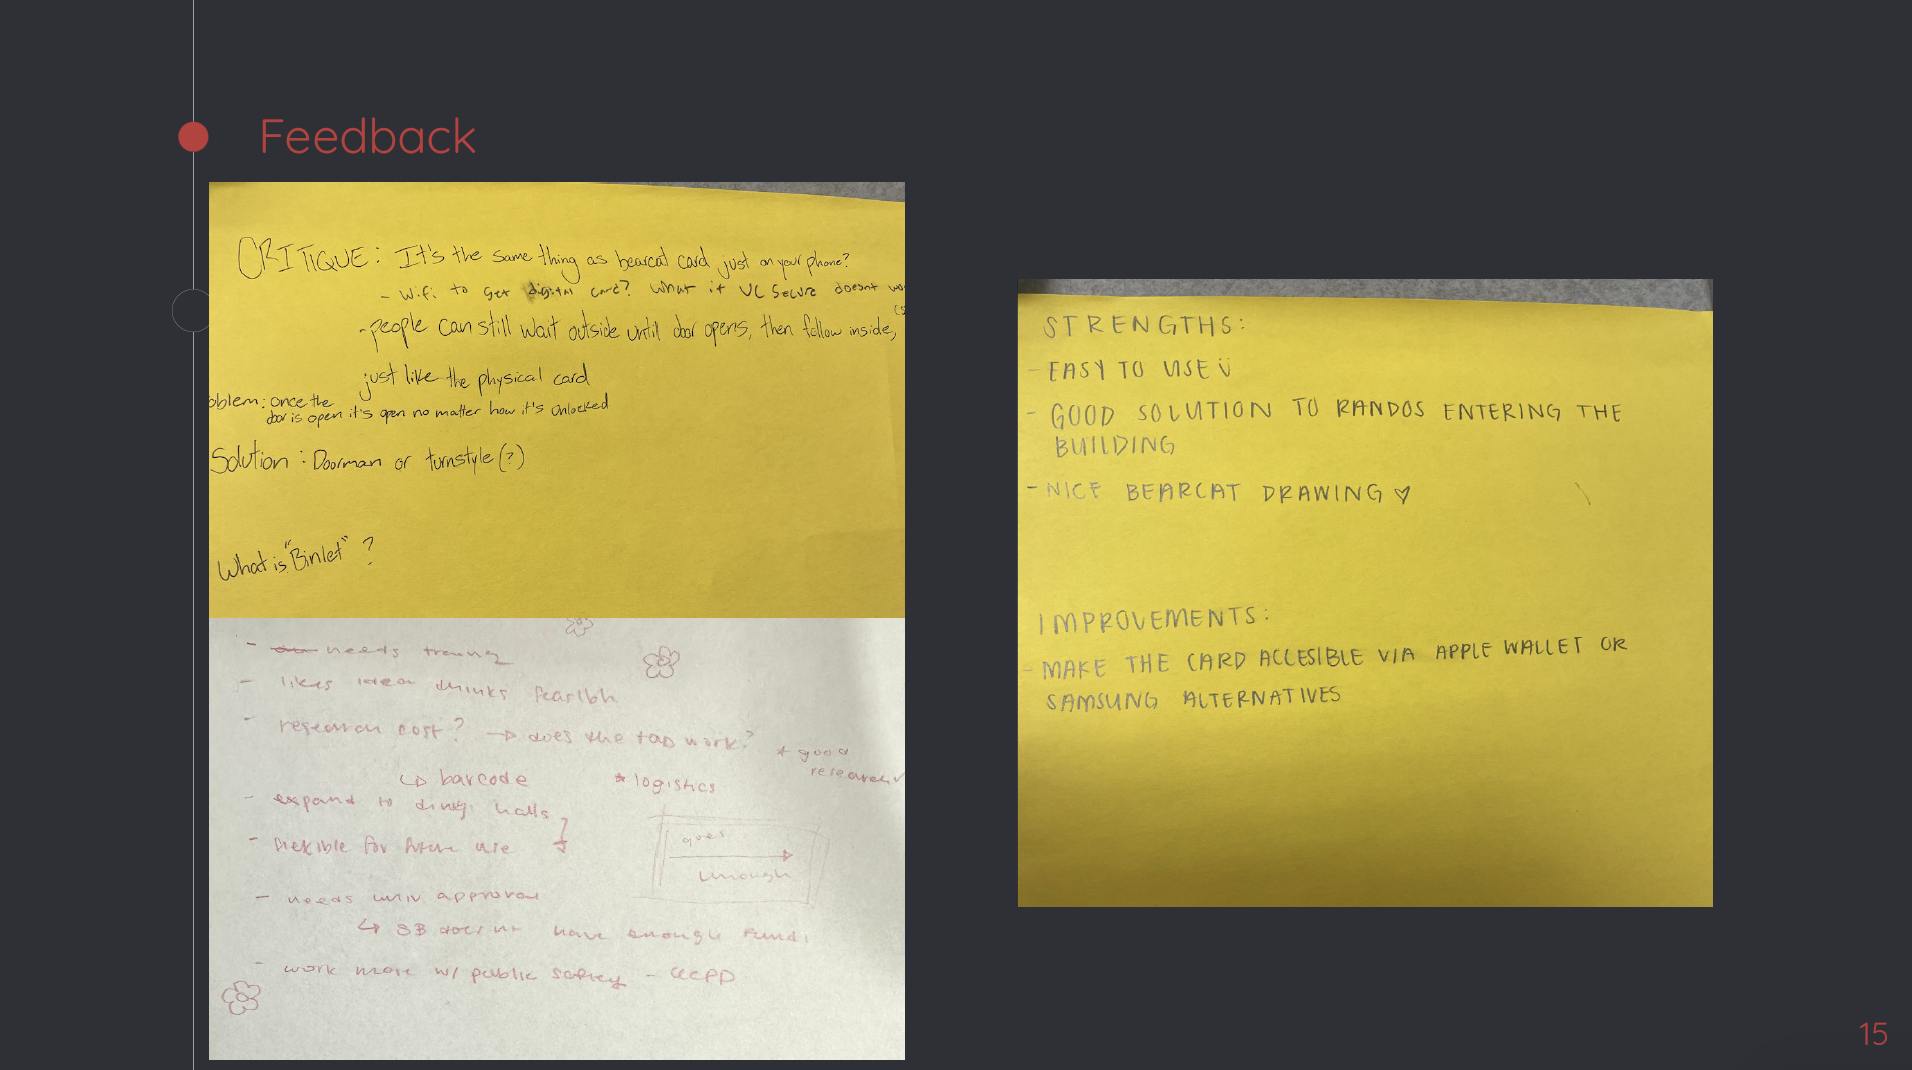 Feedback
CRITIQUE: It's the same thing as bearcat card just on your phone?
- Wifi to get digital card? What if UC Secure doesnt wo
- people can still wait outside until door opens, then follow inside,
just like the physical card
oblem: Once the
door is open it's open no matter how it's unlocked
Solution: Doorman or turnstyle(?)
What is "Binlet" ?
- needs
- likes idea thinks
- research cost? → does the tap work? * good
research
↳ barcode * logistics
- expand to halls
- flexible for future use
goes
through
- needs univ approval
↳ SB doesnt have enough funds
- work more w/ public safety - UCPD
STRENGTHS:
- EASY TO USE
- GOOD SOLUTION TO RANDOS ENTERING THE
BUILDING
- NICE BEARCAT DRAWING ♡
IMPROVEMENTS:
- MAKE THE CARD ACCESIBLE VIA APPLE WALLET OR
SAMSUNG ALTERNATIVES
15